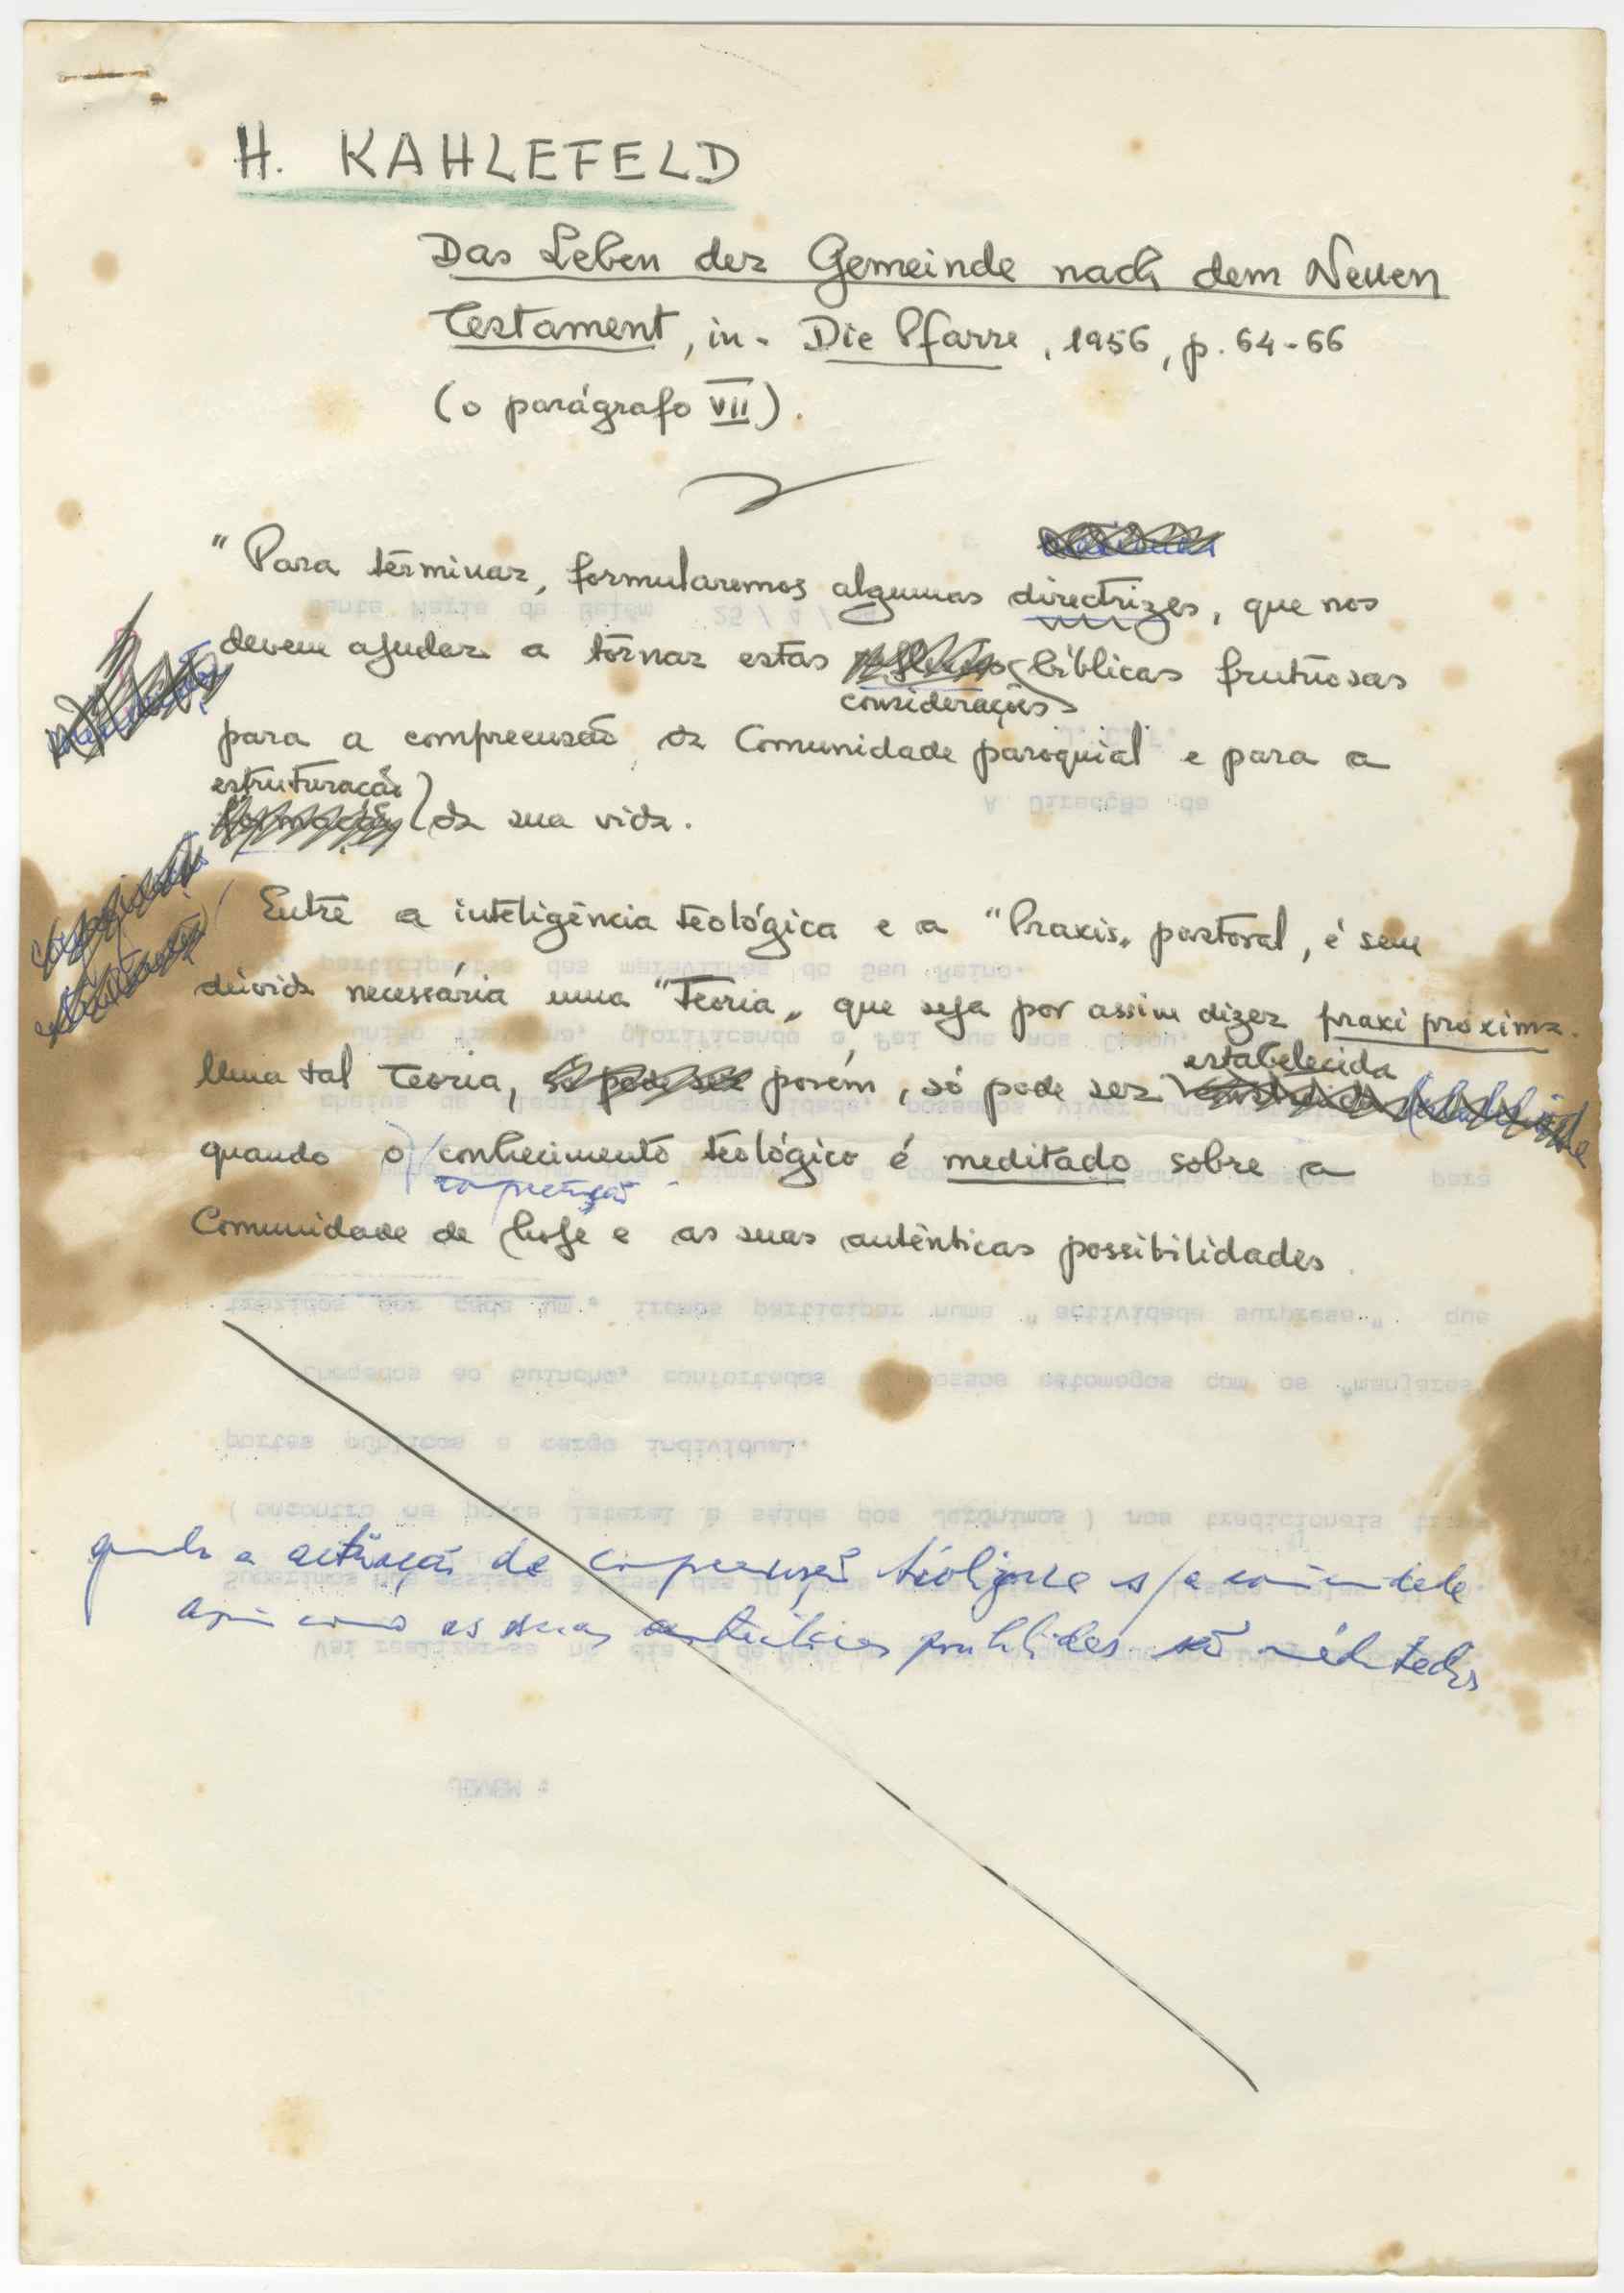 H. KAHLEFELD
Das Leben der Gemeinde nach dem Neuen
Testament, in. Die Pfarre, 1956, p. 64-66
(o parágrafo VII).
"Para terminar, formularemos algumas directrizes, que nos
devem ajudar a tornar estas bíblicas frutuosas
considerações
para a compreensão da Comunidade paroquial e para a
estruturação
formação da sua vida.
Entre a inteligência teológica e a "Praxis" pastoral, é sem
dúvida necessária uma "Teoria" que seja por assim dizer praxi proxima.
estabelecida
Uma tal Teoria, só pode ser porém, só pode ser
quando o conhecimento teológico é meditado sobre a
compreensão
Comunidade de hoje e as suas autênticas possibilidades.
quando a de compreensão teológica s/ a comunidade
assim como as suas autênticas possibilidades são meditadas